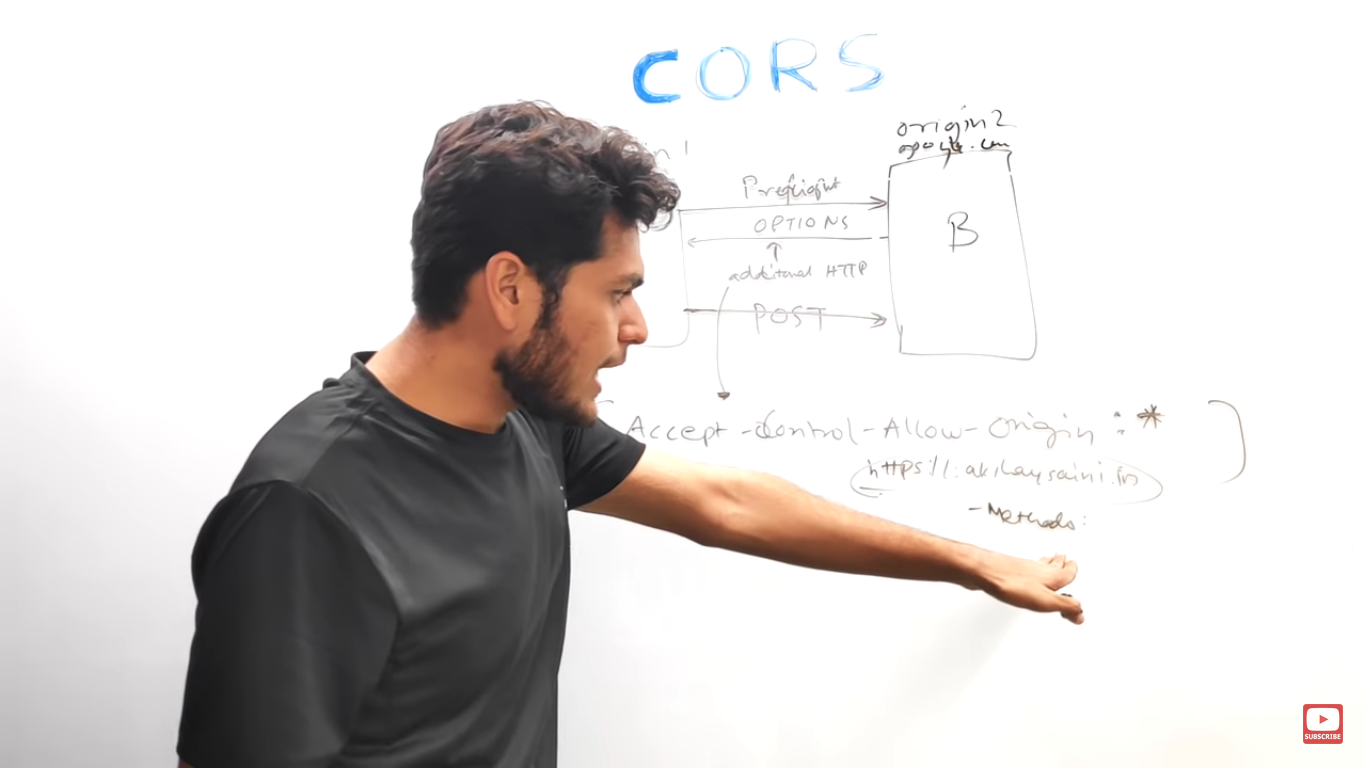 CORS
origin 2
in 1
Preflight
OPTIONS
B
additional HTTP
POST
Accept-Control-Allow-Origin : *
https://:akshaysaini.in
- Methods:
SUBSCRIBE